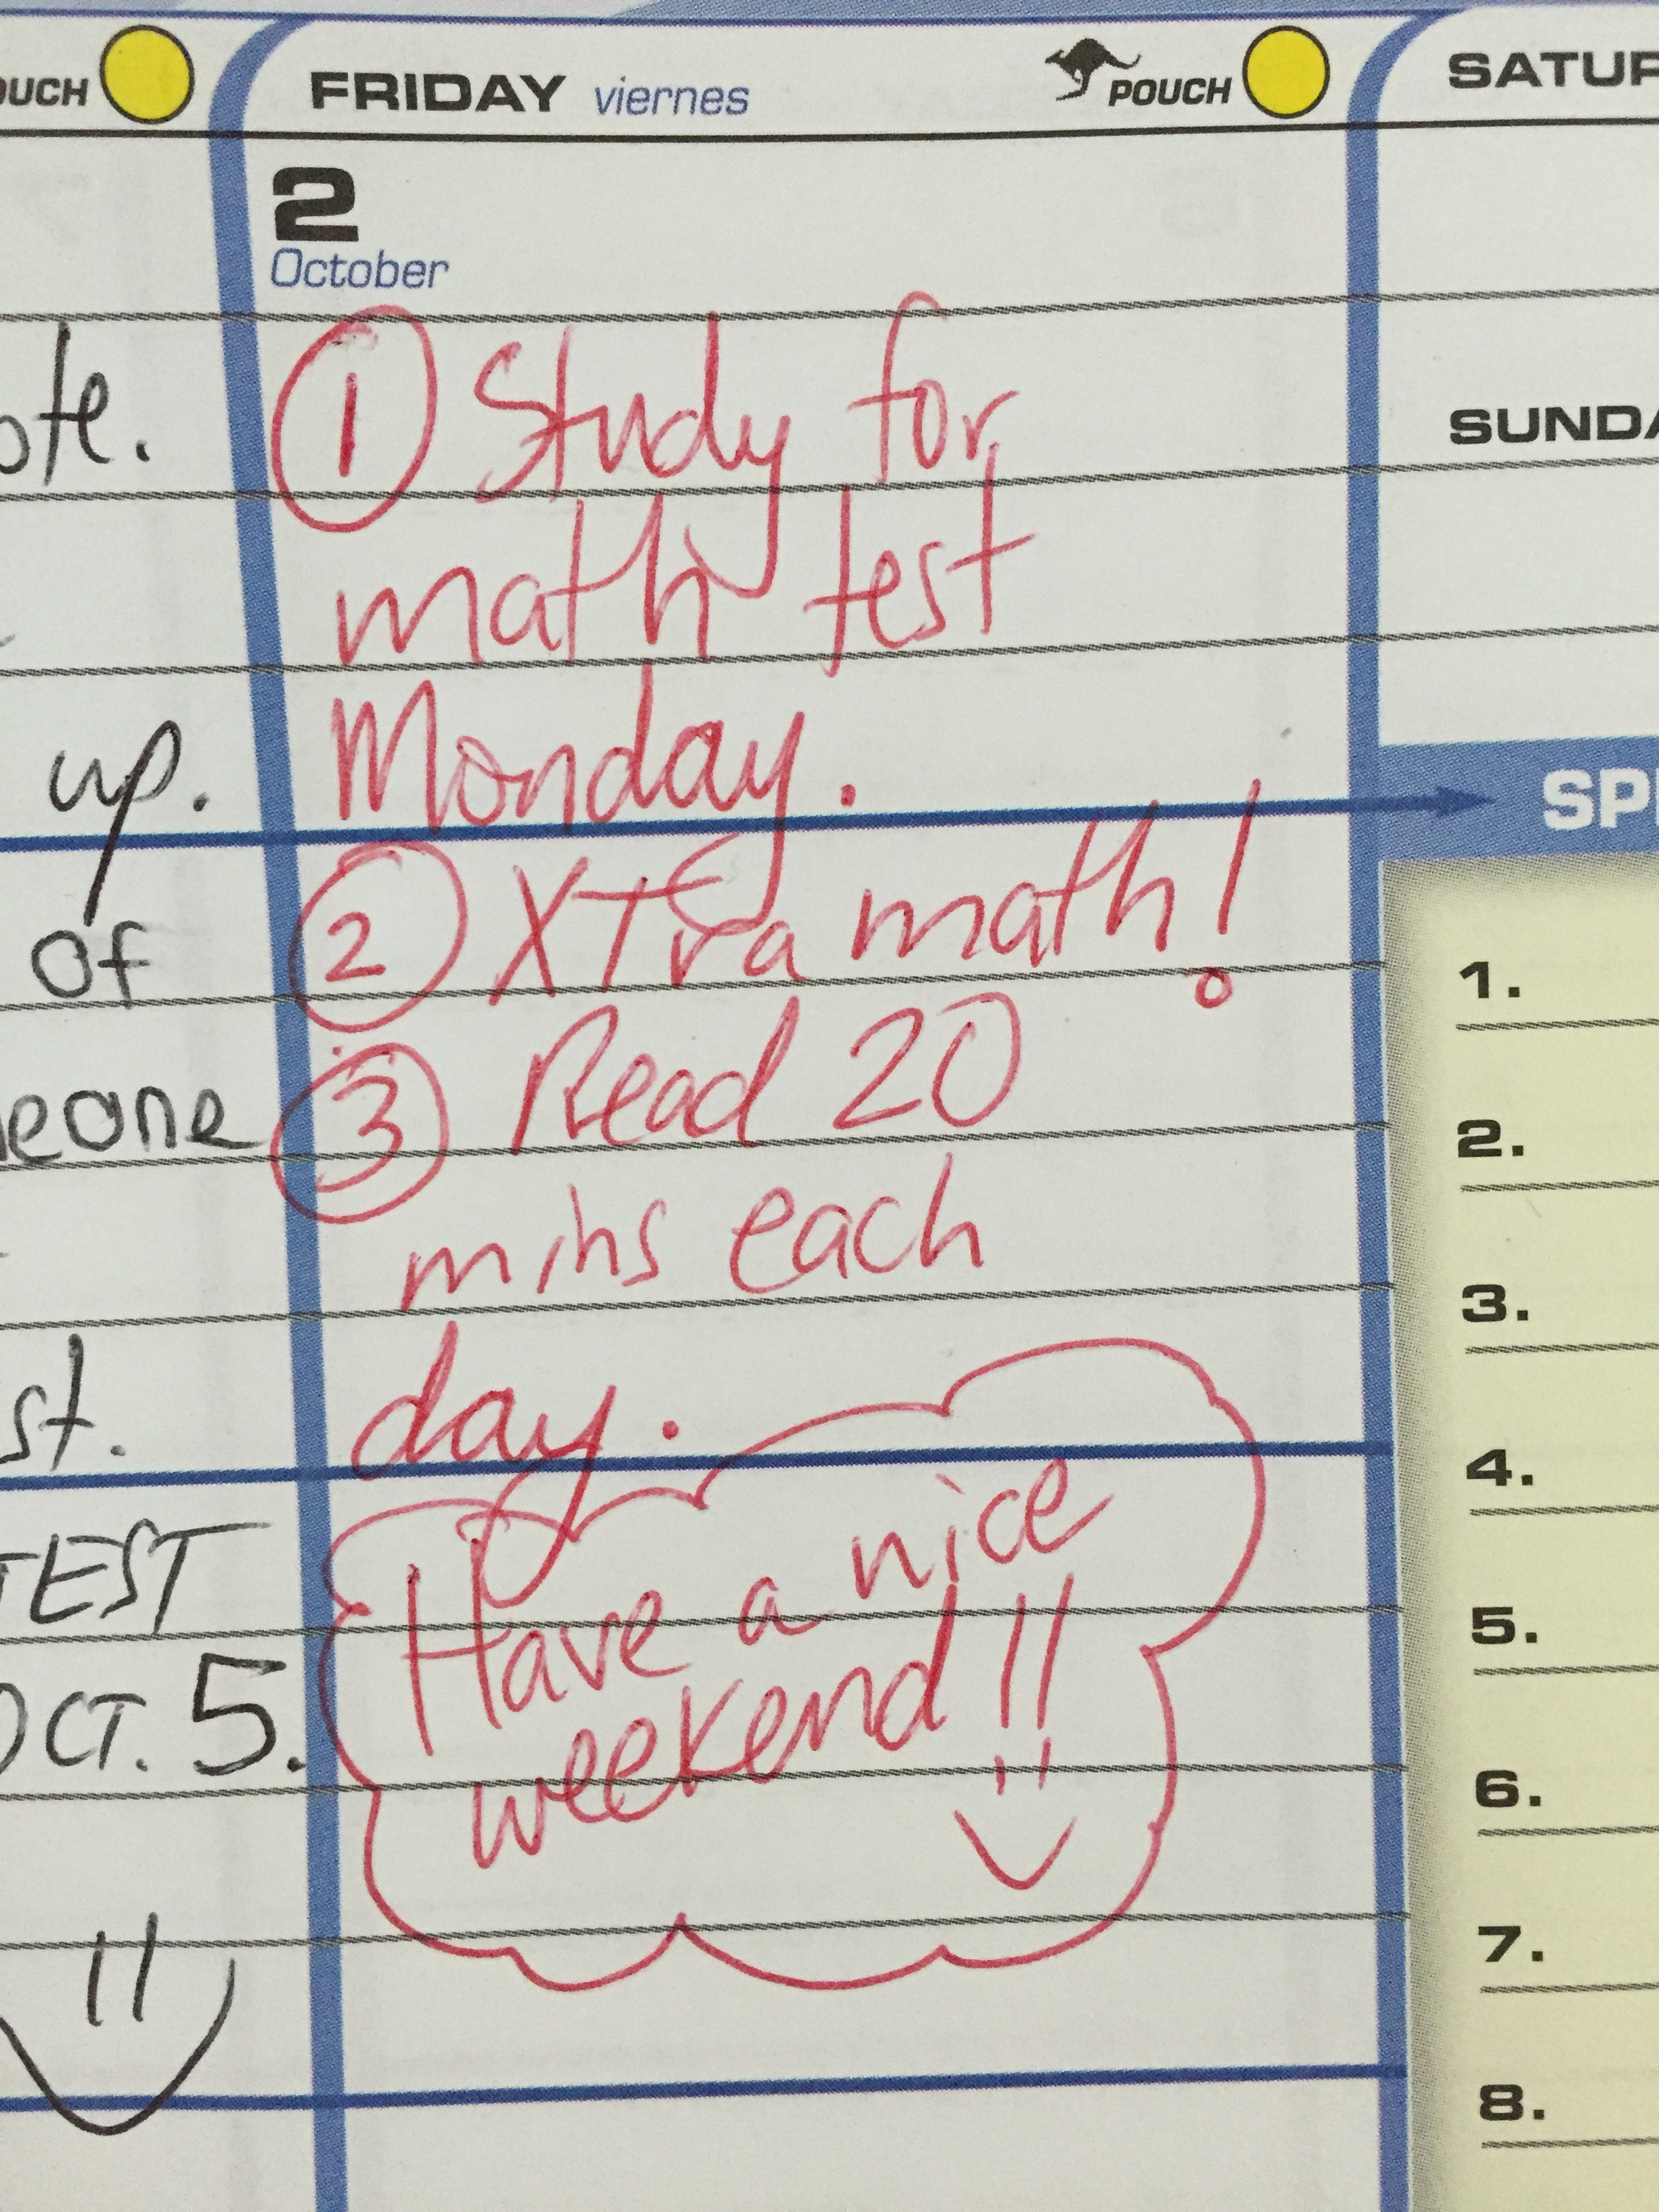 POUCH
FRIDAY viernes
POUCH
2
October
① Study for
math test
Monday.
② XTra math!
③ Read 20
mins each
day.
Have a nice
weekend!!
up.
of
TEST
OCT. 5.
1.
2.
3.
4.
5.
6.
7.
8.